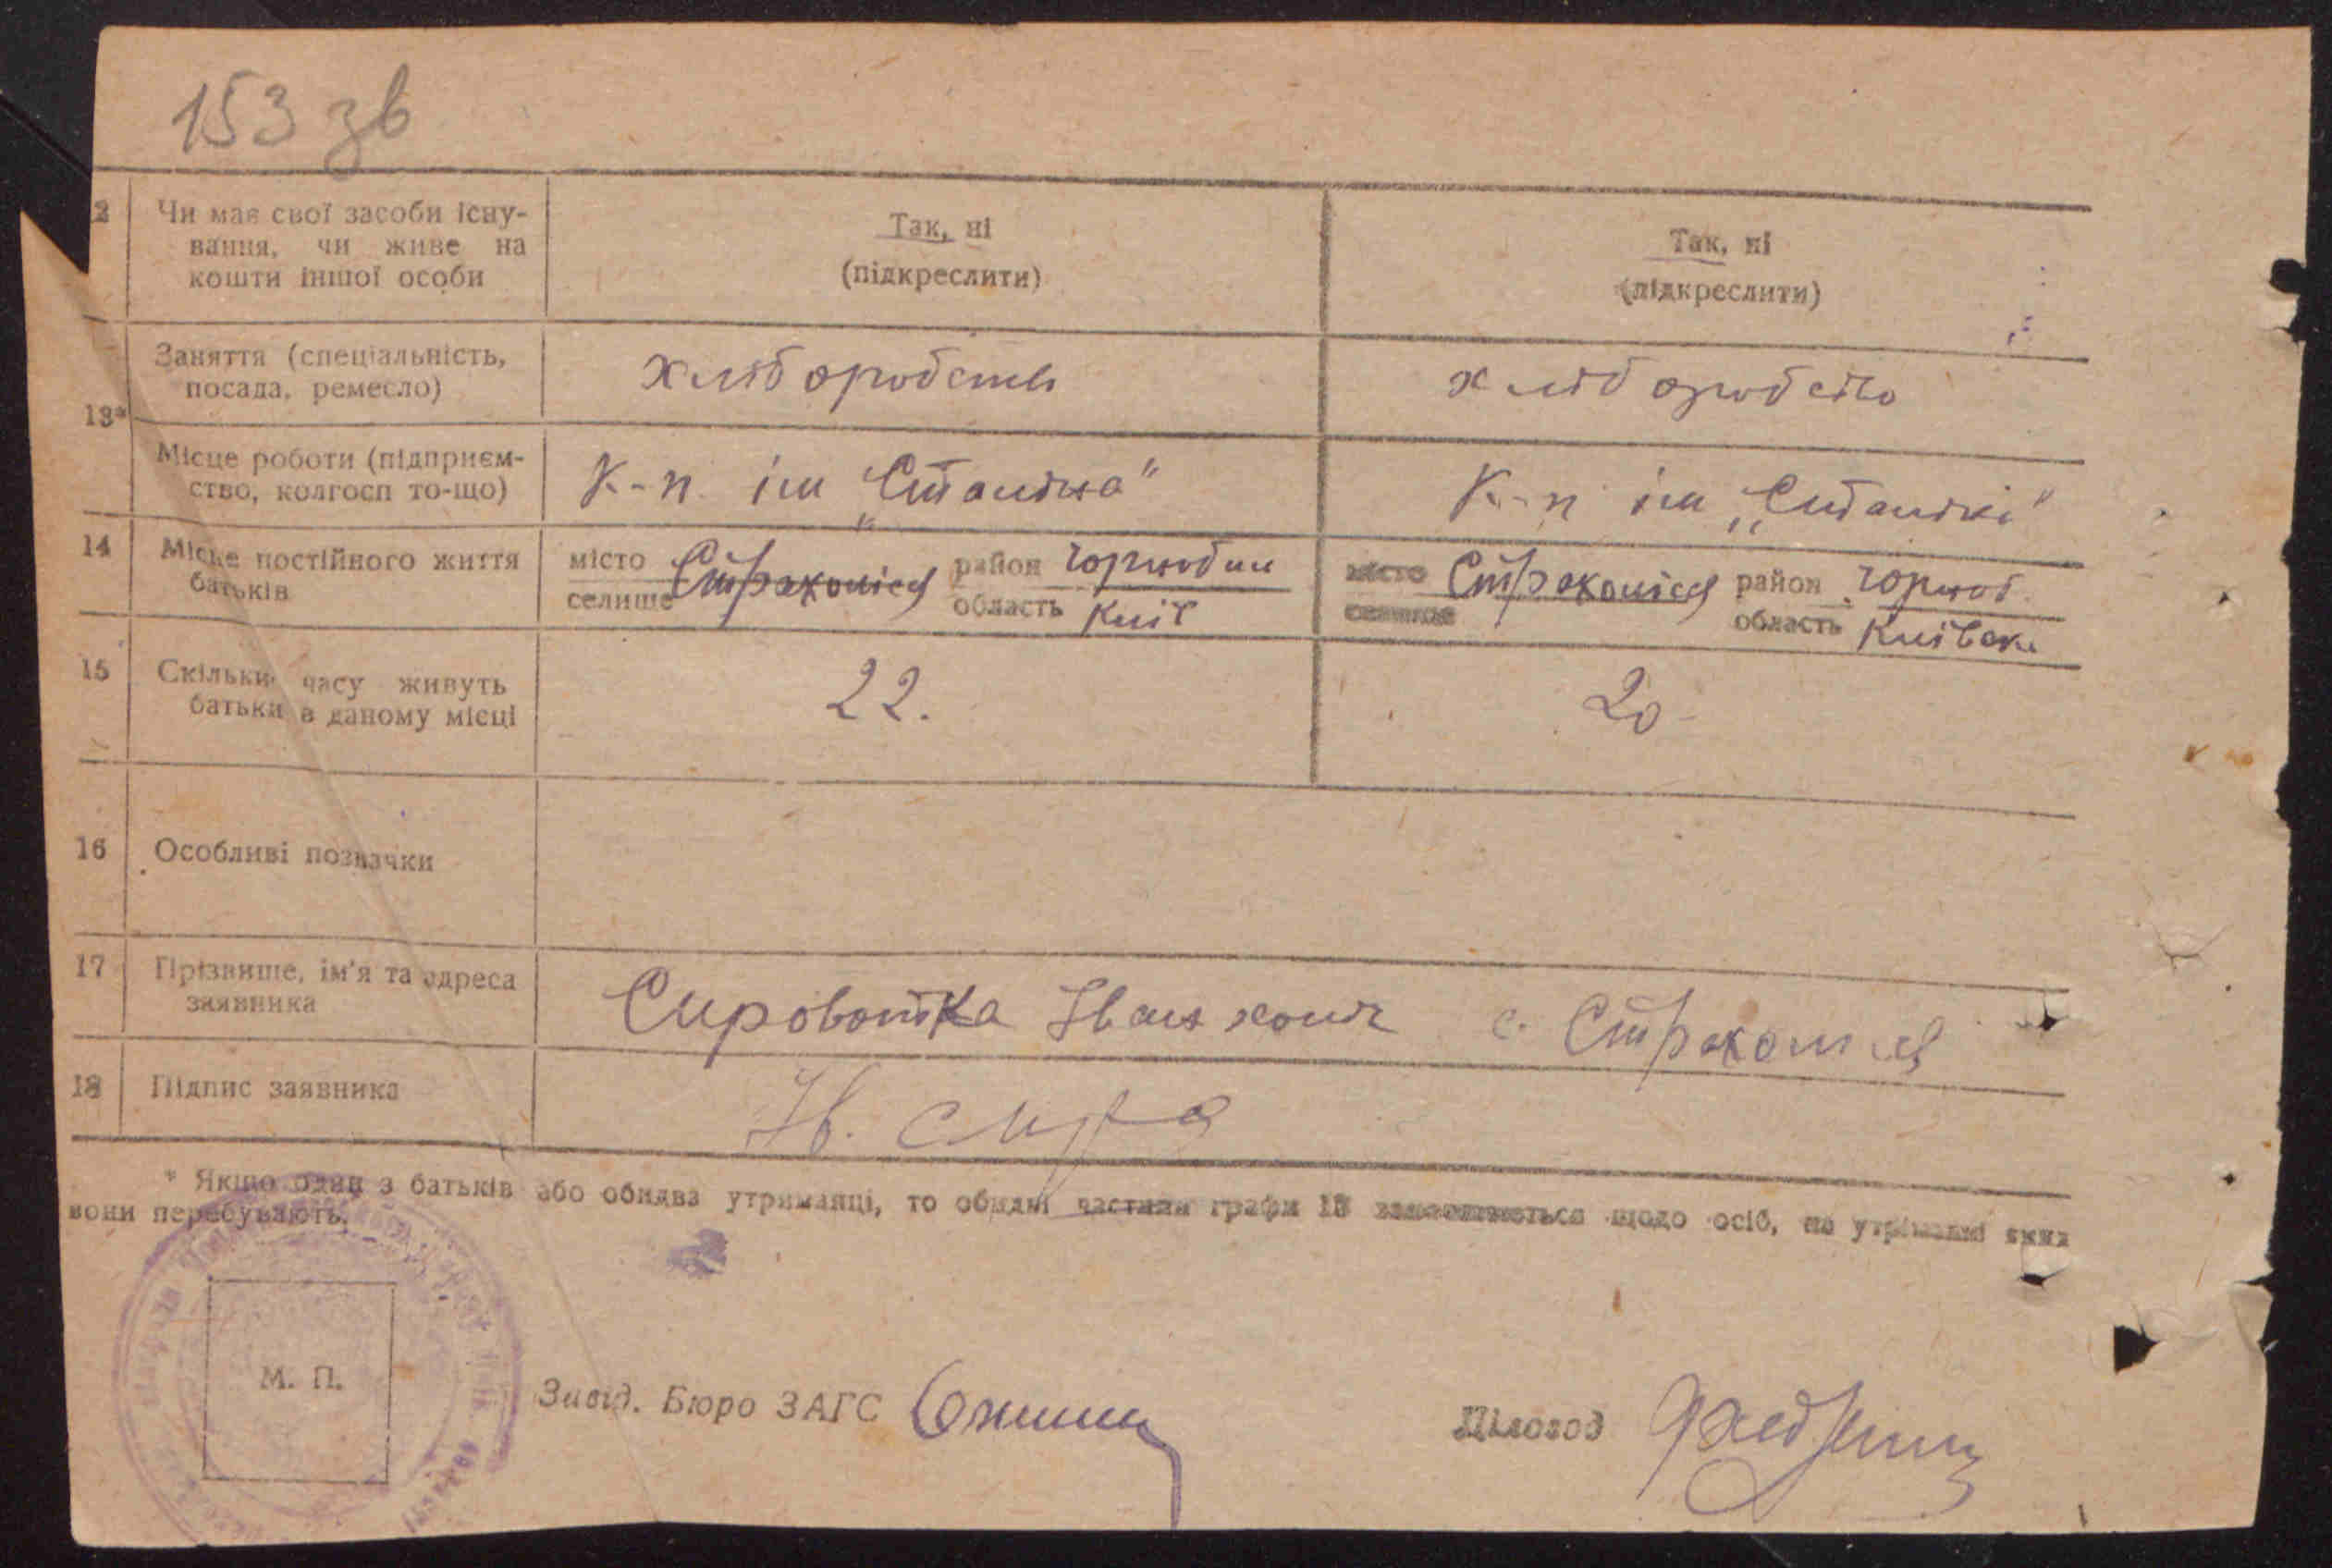 153 зв
2 Чи має свої засоби існу-
вання, чи живе на
кошти іншої особи
Так, ні
(підкреслити)
Так, ні
(підкреслити)
13*
Заняття (спеціальність,
посада, ремесло)
хліборобств
хліборобство
Місце роботи (підприєм-
ство, колгосп то-що)
К-п ім „Сталіна"
К-п ім „Сталіні"
14 Місце постійного життя
батьків
місто
селище
Страхолісся
район Чорнобил
область Київ
місто
селище
Страхолісся
район Чорноб.
область Київськ.
15 Скільки часу живуть
батьки в даному місці
22.
20
16 Особливі позначки
17 Прізвище, ім'я та адреса
заявника
Сироватка Іван с. Страхолісся
18 Підпис заявника
Ів.
* Якщо один з батьків або обидва утриманці, то обидві частини графи 13 заповнюються щодо осіб, на утриманні яких
вони перебувають.
М. П.
Завід. Бюро ЗАГС
Діловод